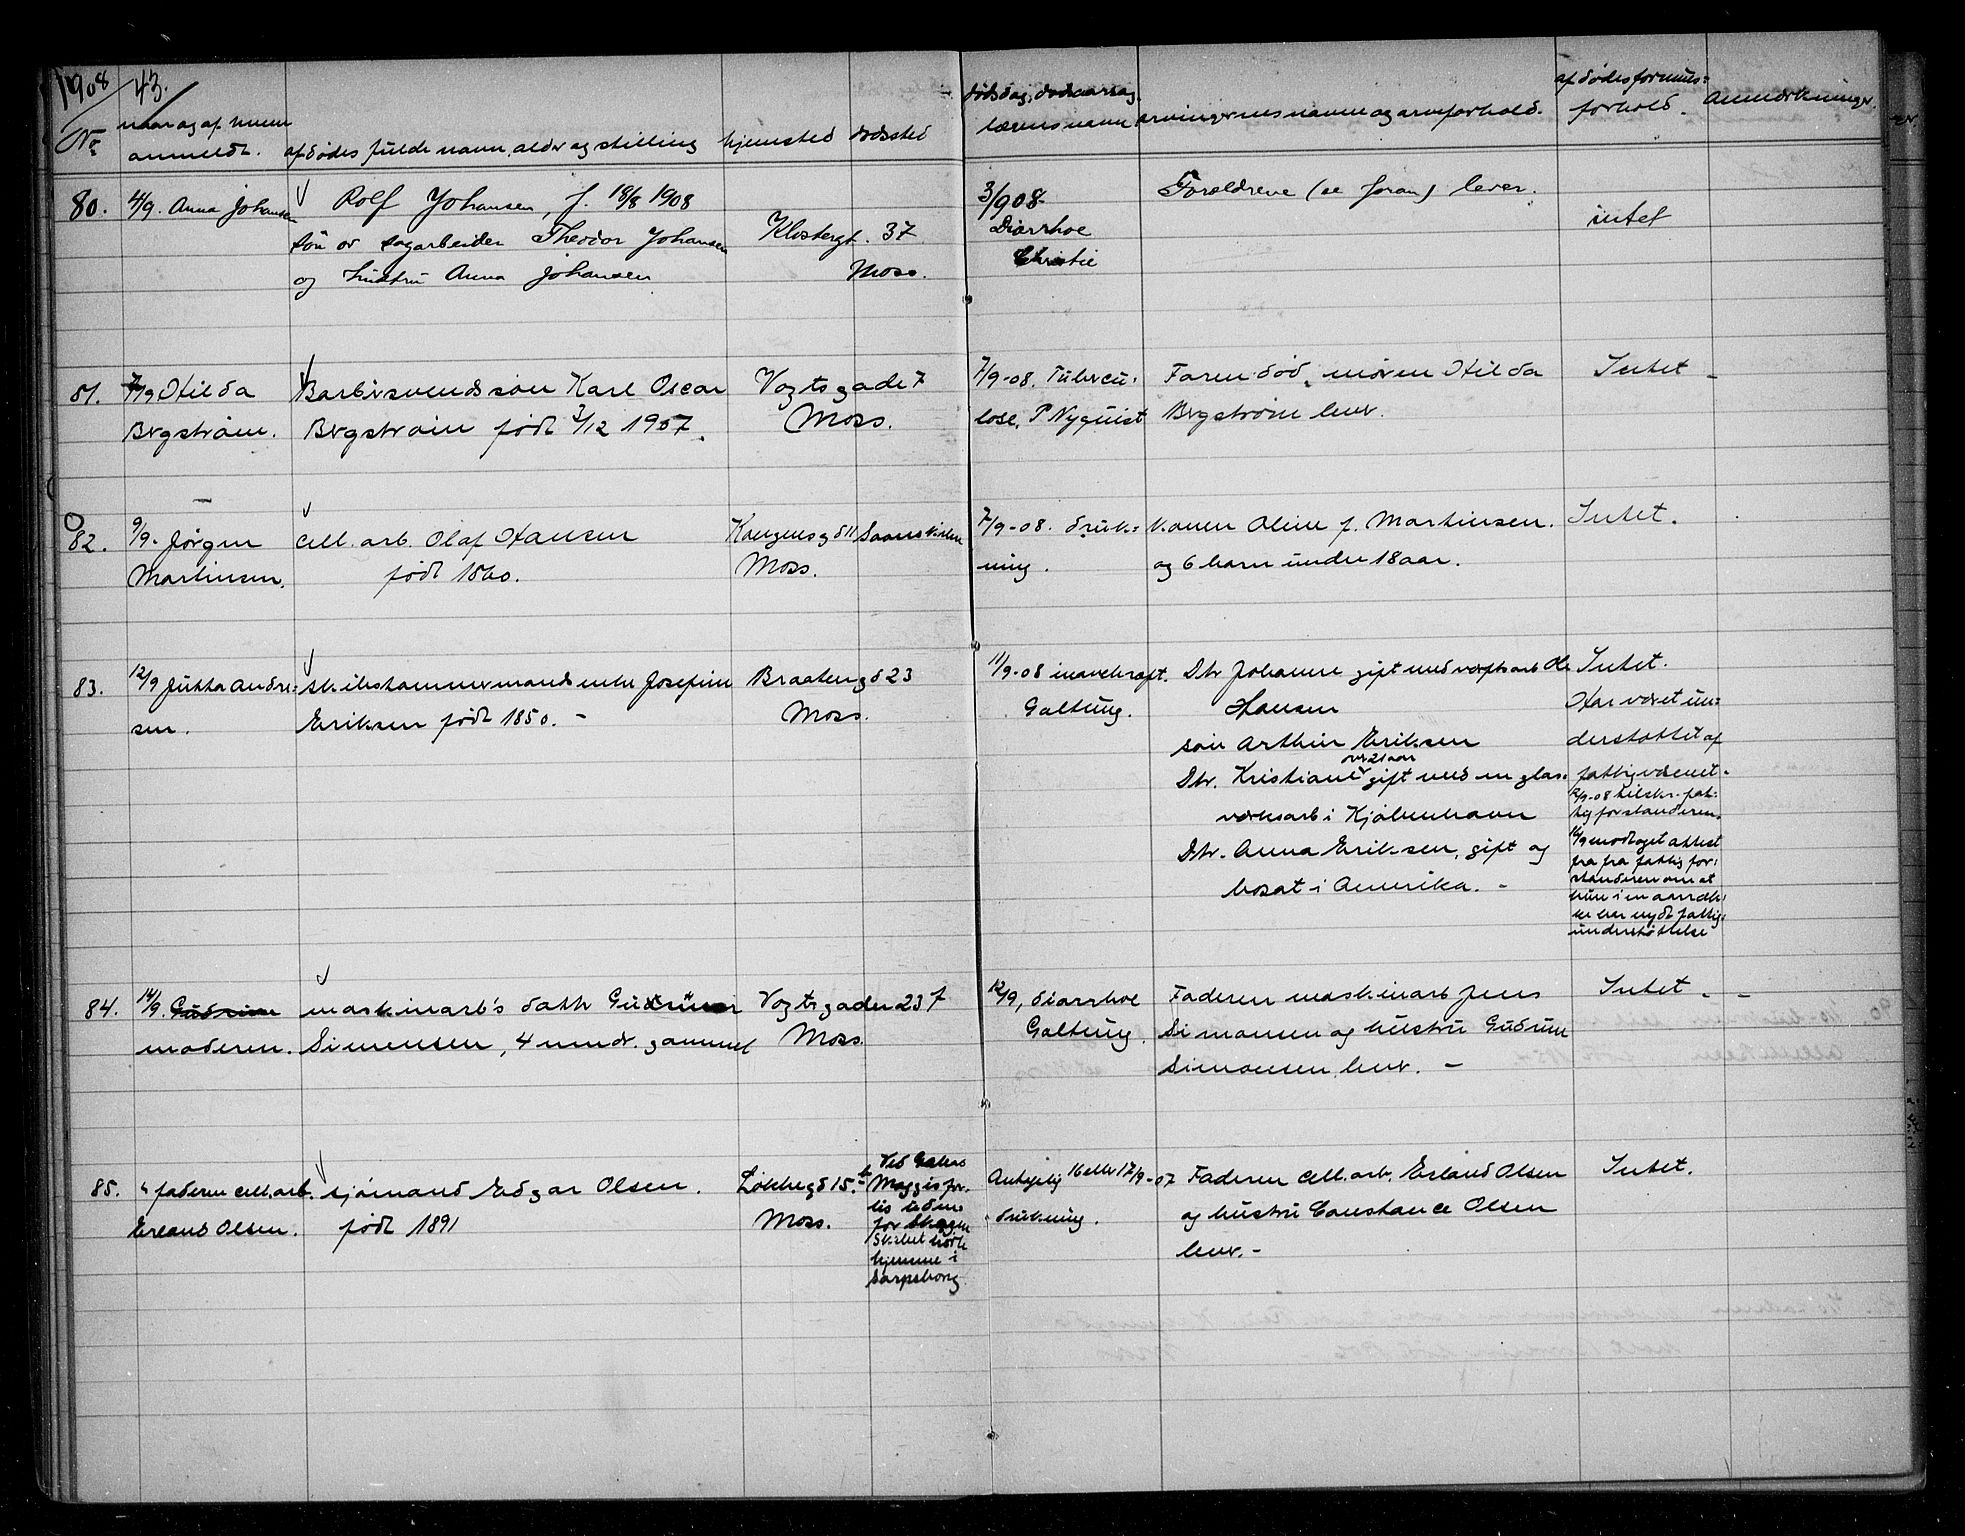 1908
43.
No
naar og af hvem
anmeldt.
afdødes fulde navn, alder og stilling
hjemsted
dødssted
dødsdag, dødsaarsag,
lægens navn
arvingernes navne og arveforhold.
afdødes formues=
forhold.
Anmærkninger.
80.
4/9. Anna Johansen
Rolf Johansen, f. 18/8 1908
søn av sagarbeider Theodor Johansen
og hustru Anna Johansen
Klostergt. 37
Moss.
3/9 08-
Diarrhoe
Christie
Forældrene (se foran) lever.
intet
81.
7/9 Hilda
Bergstrøm.
Barbersvends søn Karl Oscar
Bergstrøm født 3/12 1907.
Vogtsgade 7
Moss.
7/9-08. Tubercu-
lose. P Nyquist
Faren død, moren Hilda
Bergstrøm lever.
Intet -
82.
9/9. Jørgen
Martinsen.
cell. arb. Olaf Hansen
født 1860.
Kongensgd 11
Moss.
7/9-08. druk=
ning.
konen Oline f. Martinsen.
og 6 barn under 18 aar.
Intet.
83.
12/9 Jutta Andre=
sen.
skibstømmermands enke Josefine
Eriksen født 1850. -
Braatengd 23
Moss.
11/9-08 mavekræft.
Galtung.
Dtr Johanne gift med værftsarb Ole
Hansen
søn Arthur Eriksen
over 21 aar
Dtr. Kristiane gift med en glas-
værksarb i Kjøbenhavn
Dtr. Anna Eriksen, gift og
bosat i Amerika. -
Intet.
Har været un=
derstøttet af
fattigvæsenet-
12/9-08 tilskr. fat-
tigforstanderen.
14/9 modtaget attest
fra fra fattigfor-
standeren om at
hun i en aarræk-
ke har nydt fattig-
understøttelse
84.
14/9. Gudrun
moderen.
maskinarb's datter Gudrun
Simensen, 4 mndr. gammel
Vogtsgaden 23
Moss.
12/9, diarrhoe
Galtung.
Faderen maskinarb Jens
Simonsen og hustru Gudrun
Simonsen lever. -
Intet - -
85.
" faderen cell. arb.
Erland Olsen.
sjømand Edgar Olsen.
født 1891
Løkkegd 15.
Moss.
Ved
Maggis for-
lis uden-
for Skagen
Skibet hørte
hjemme i
Sarpsborg
Antagelig 16 eller 17/9-07
drukning.
Faderen cell. arb. Erland Olsen
og hustru Constance Olsen
lever. -
Intet.